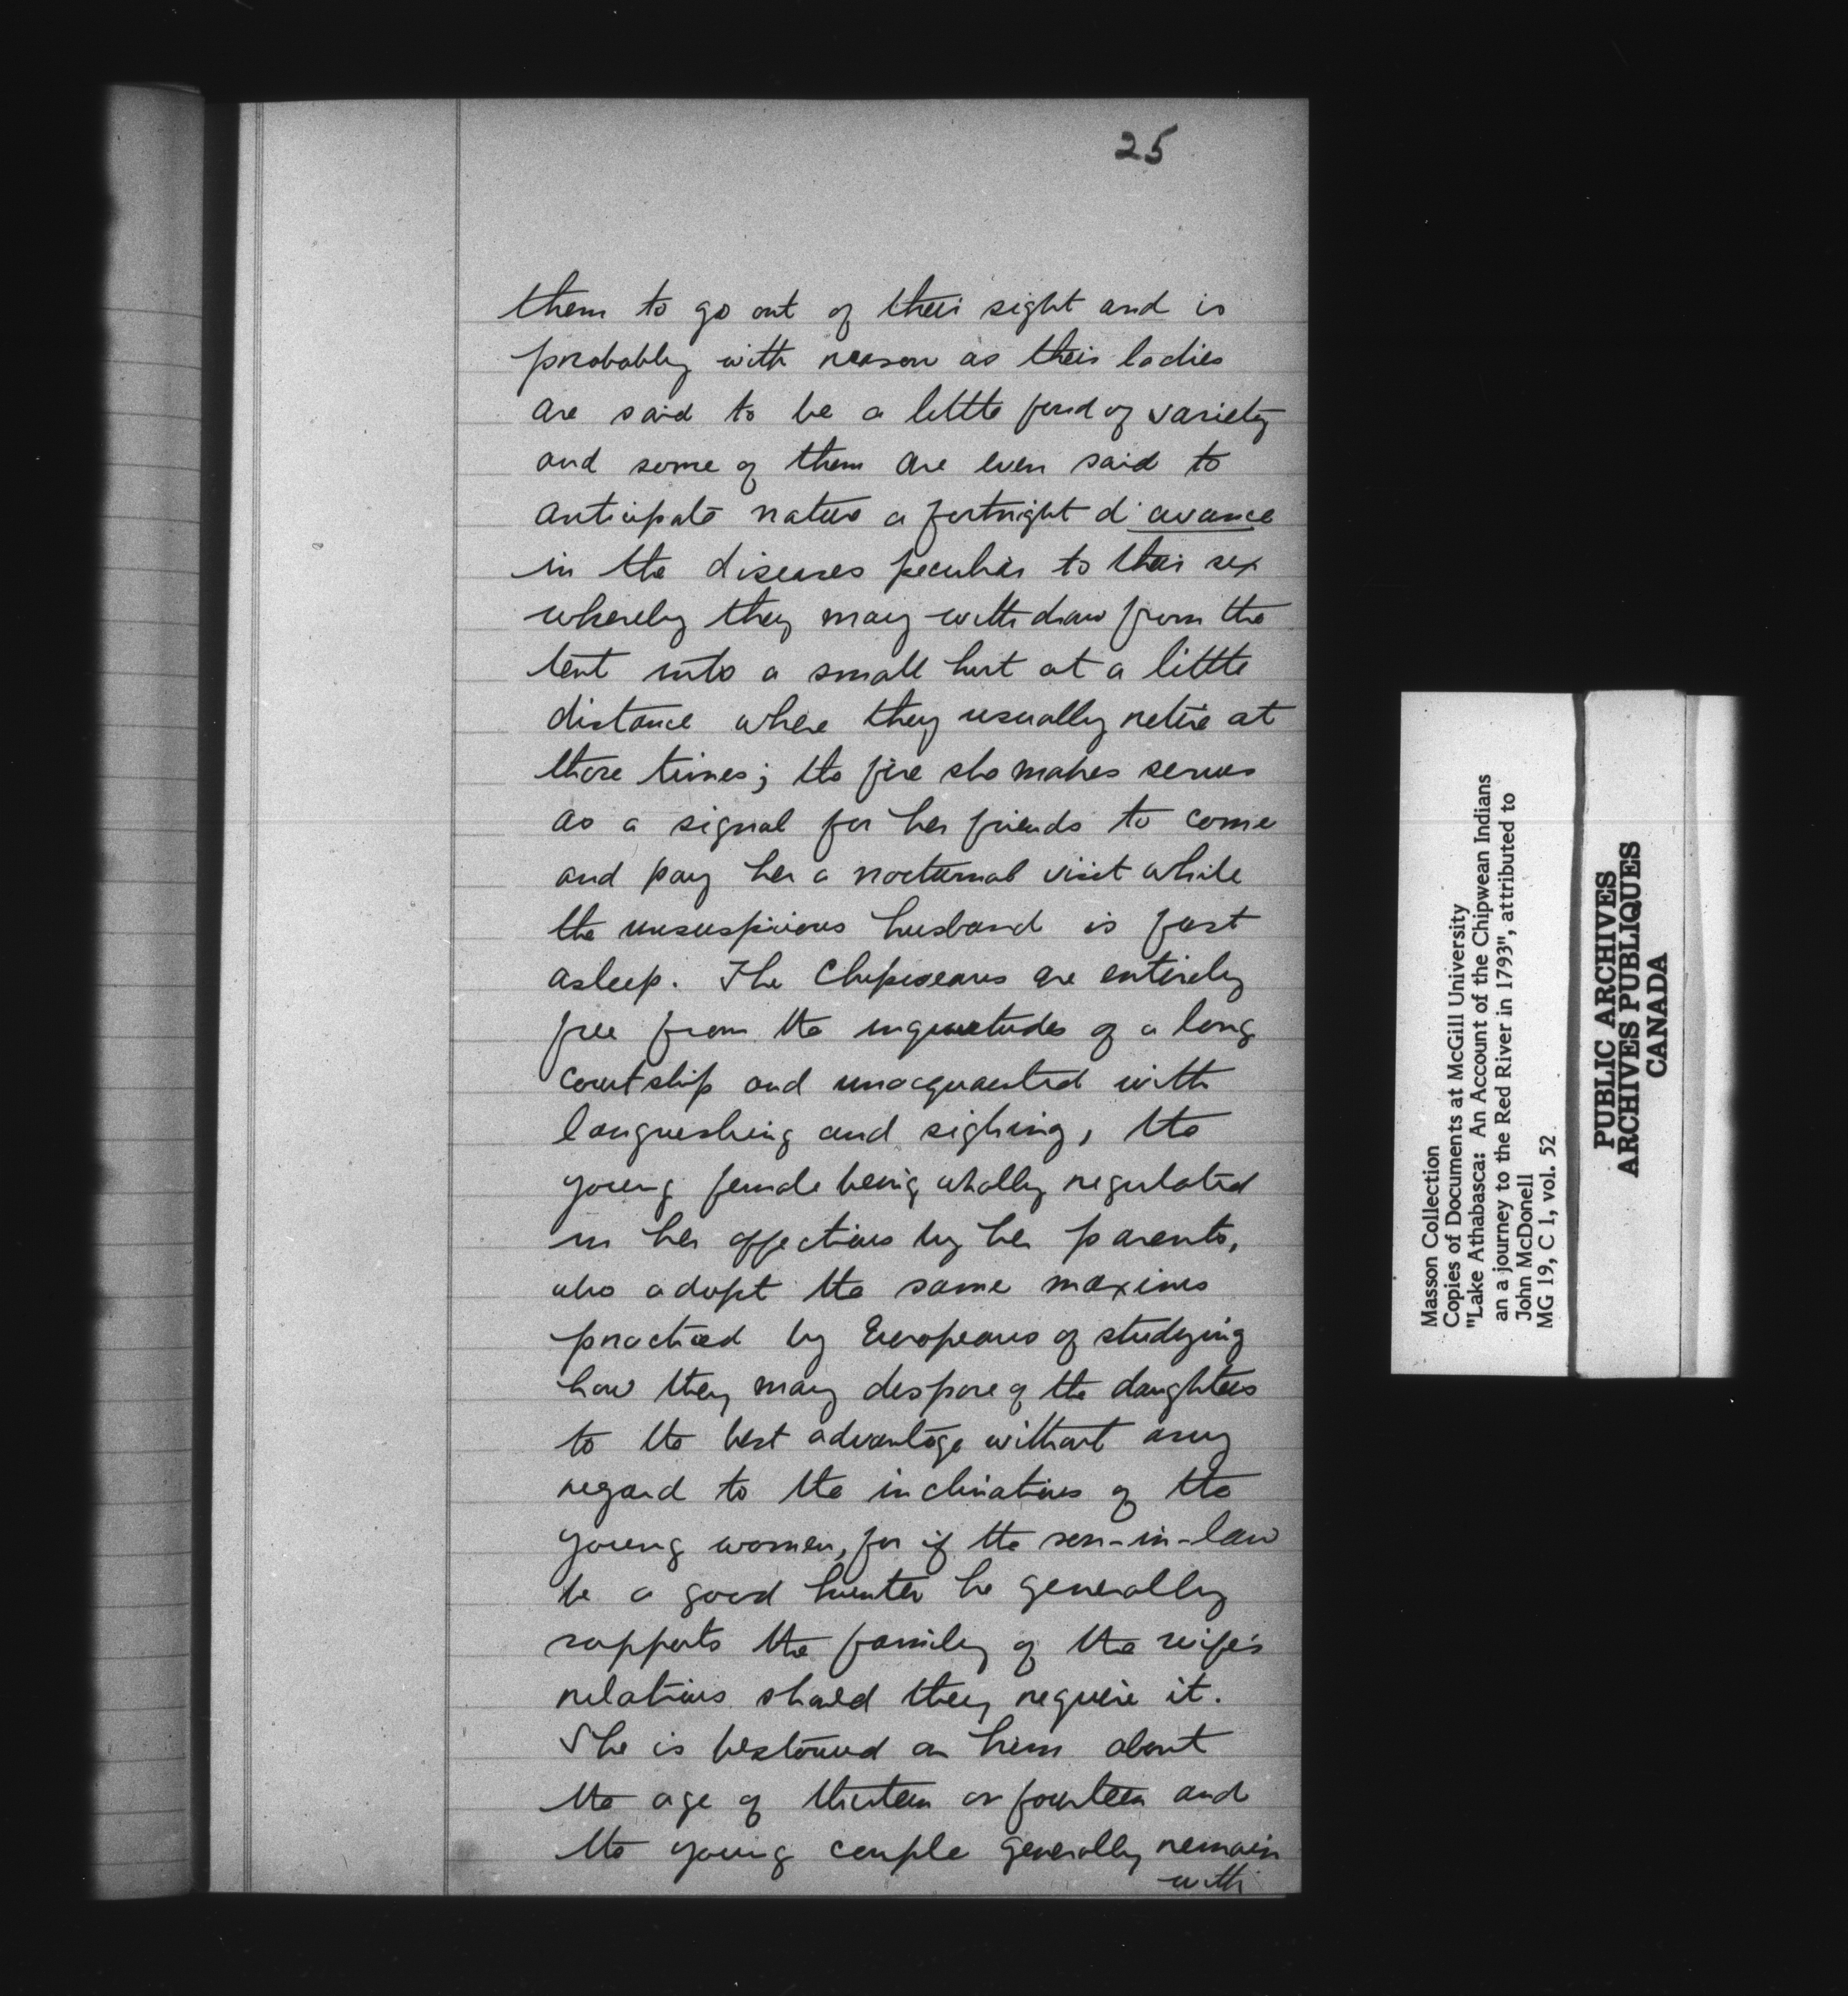 25
them to go out of their sight and is
probably with reason as their ladies
are said to be a little fond of variety
and some of them are even said to
anticipate nature a fortnight d'avance
in the diseases peculiar to their sex
whereby they may withdraw from the
tent into a small hut at a little
distance where they usually retire at
those times; the fire she makes serves
as a signal for her friends to come
and pay her a nocturnal visit while
the unsuspicious husband is fast
asleep. The Chepeweans are entirely
free from the inquietudes of a long
courtship and unacquainted with
languishing and sighing, the
young female being wholly regulated
in her affections by her parents,
who adopt the same maxims
practiced by Europeans of studying
how they may dispose of the daughters
to the best advantage without any
regard to the inclinations of the
young women, for if the son-in-law
be a good hunter he generally
supports the family of the wife's
relations should they require it.
She is bestowed on him about
the age of thirteen or fourteen and
the young couple generally remain
with
Masson Collection
Copies of Documents at McGill University
"Lake Athabasca: An Account of the Chipwean Indians
an a journey to the Red River in 1793", attributed to
John McDonell
MG 19, C 1, vol. 52
PUBLIC ARCHIVES
ARCHIVES PUBLIQUES
CANADA